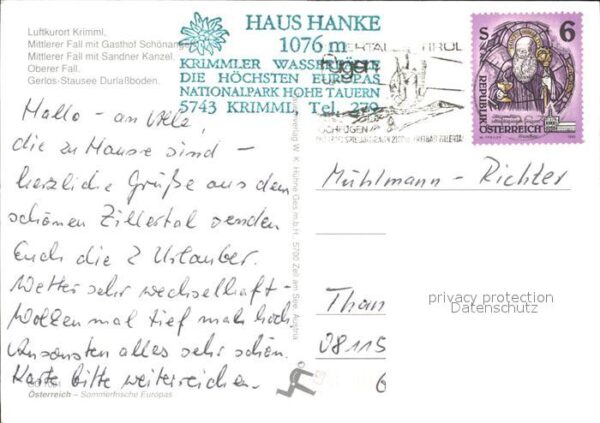 Luftkurort Krimml,
Mittlerer Fall mit Gasthof Schönangerl
Mittlerer Fall mit Sandner Kanzel.
Oberer Fall.
Gerlos-Stausee Durlaßboden.
HAUS HANKE
1076 m
KRIMMLER WASSERFÄLLE
DIE HÖCHSTEN EUROPAS
NATIONALPARK HOHE TAUERN
5743 KRIMML, Tel. 279
TIROL
HOCHFÜGEN
S 6
REPUBLIK
ÖSTERREICH
Hallo - an Alle,
die zu Hause sind -
herzliche Grüße aus dem
schönen Zillertal senden
Euch die 2 Urlauber.
Wetter sehr wechselhaft -
Wolken mal tief mal hoch,
Ansonsten alles sehr schön.
Karte bitte weiterreichen.
Österreich – Sommerfrische Europas
W. K. Hühne Ges.m.b.H. 5700 Zell am See, Austria
Mühlmann - Richter
Than
08115
6
privacy protection
Datenschutz